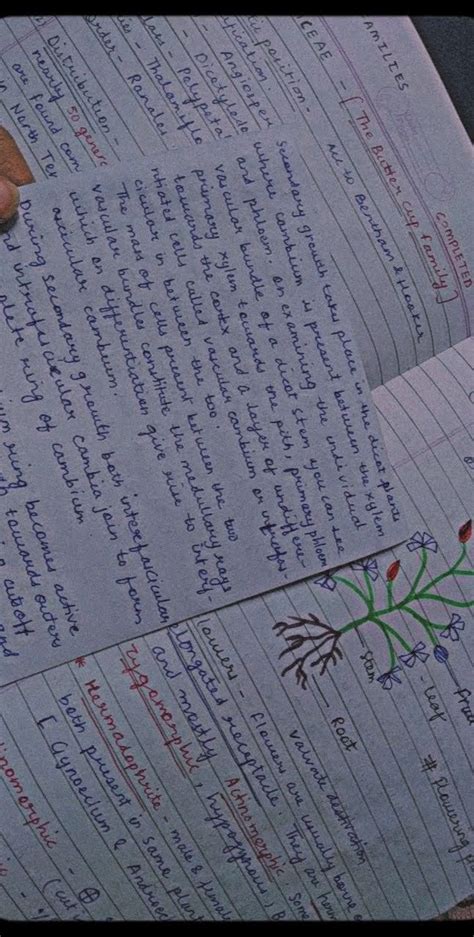 AMILIES
COMPLETED
CEAE - [The Butter cup family]
Acc to Bentham & Hooker
tic position -
ification.
Angiosper
Dicotyledo
lass - Polypeta
ies - Thalamiflo
order - Ranales
Distribution -
nearly 50 genera
are found com
in North Tem
Secondary growth takes place in the dicot plants
where cambium is present between the xylem
and phloem. On examining the individual
vascular bundle of a dicot stem you can see
primary xylem towards the pith, primary phloem
towards the cortex and a layer of undiffere-
ntiated cells called vascular cambium or intrafas-
cicular in between the too.
The mass of cells present between the two
vascular bundles constitute the medullary rays
which on differentiation give rise to interf-
ascicular cambium.
During secondary growth both interfascicular
nd intrafascicular cambia join to form
plete ring of cambium
ium ring becomes active
towards outers
cutoff
and
Fruit
leaf
Stem
Root
# Flowering
valvate
lowers - Flowers are usually borne o
elongated receptacle. They are
and mostly Actinomorphic, Some
Zygomorphic, hypogynous, B
* Hermadophrite - male & female
both present in same plant
[Gynoecium & Androec
inomorphic - ⊕
(cut i